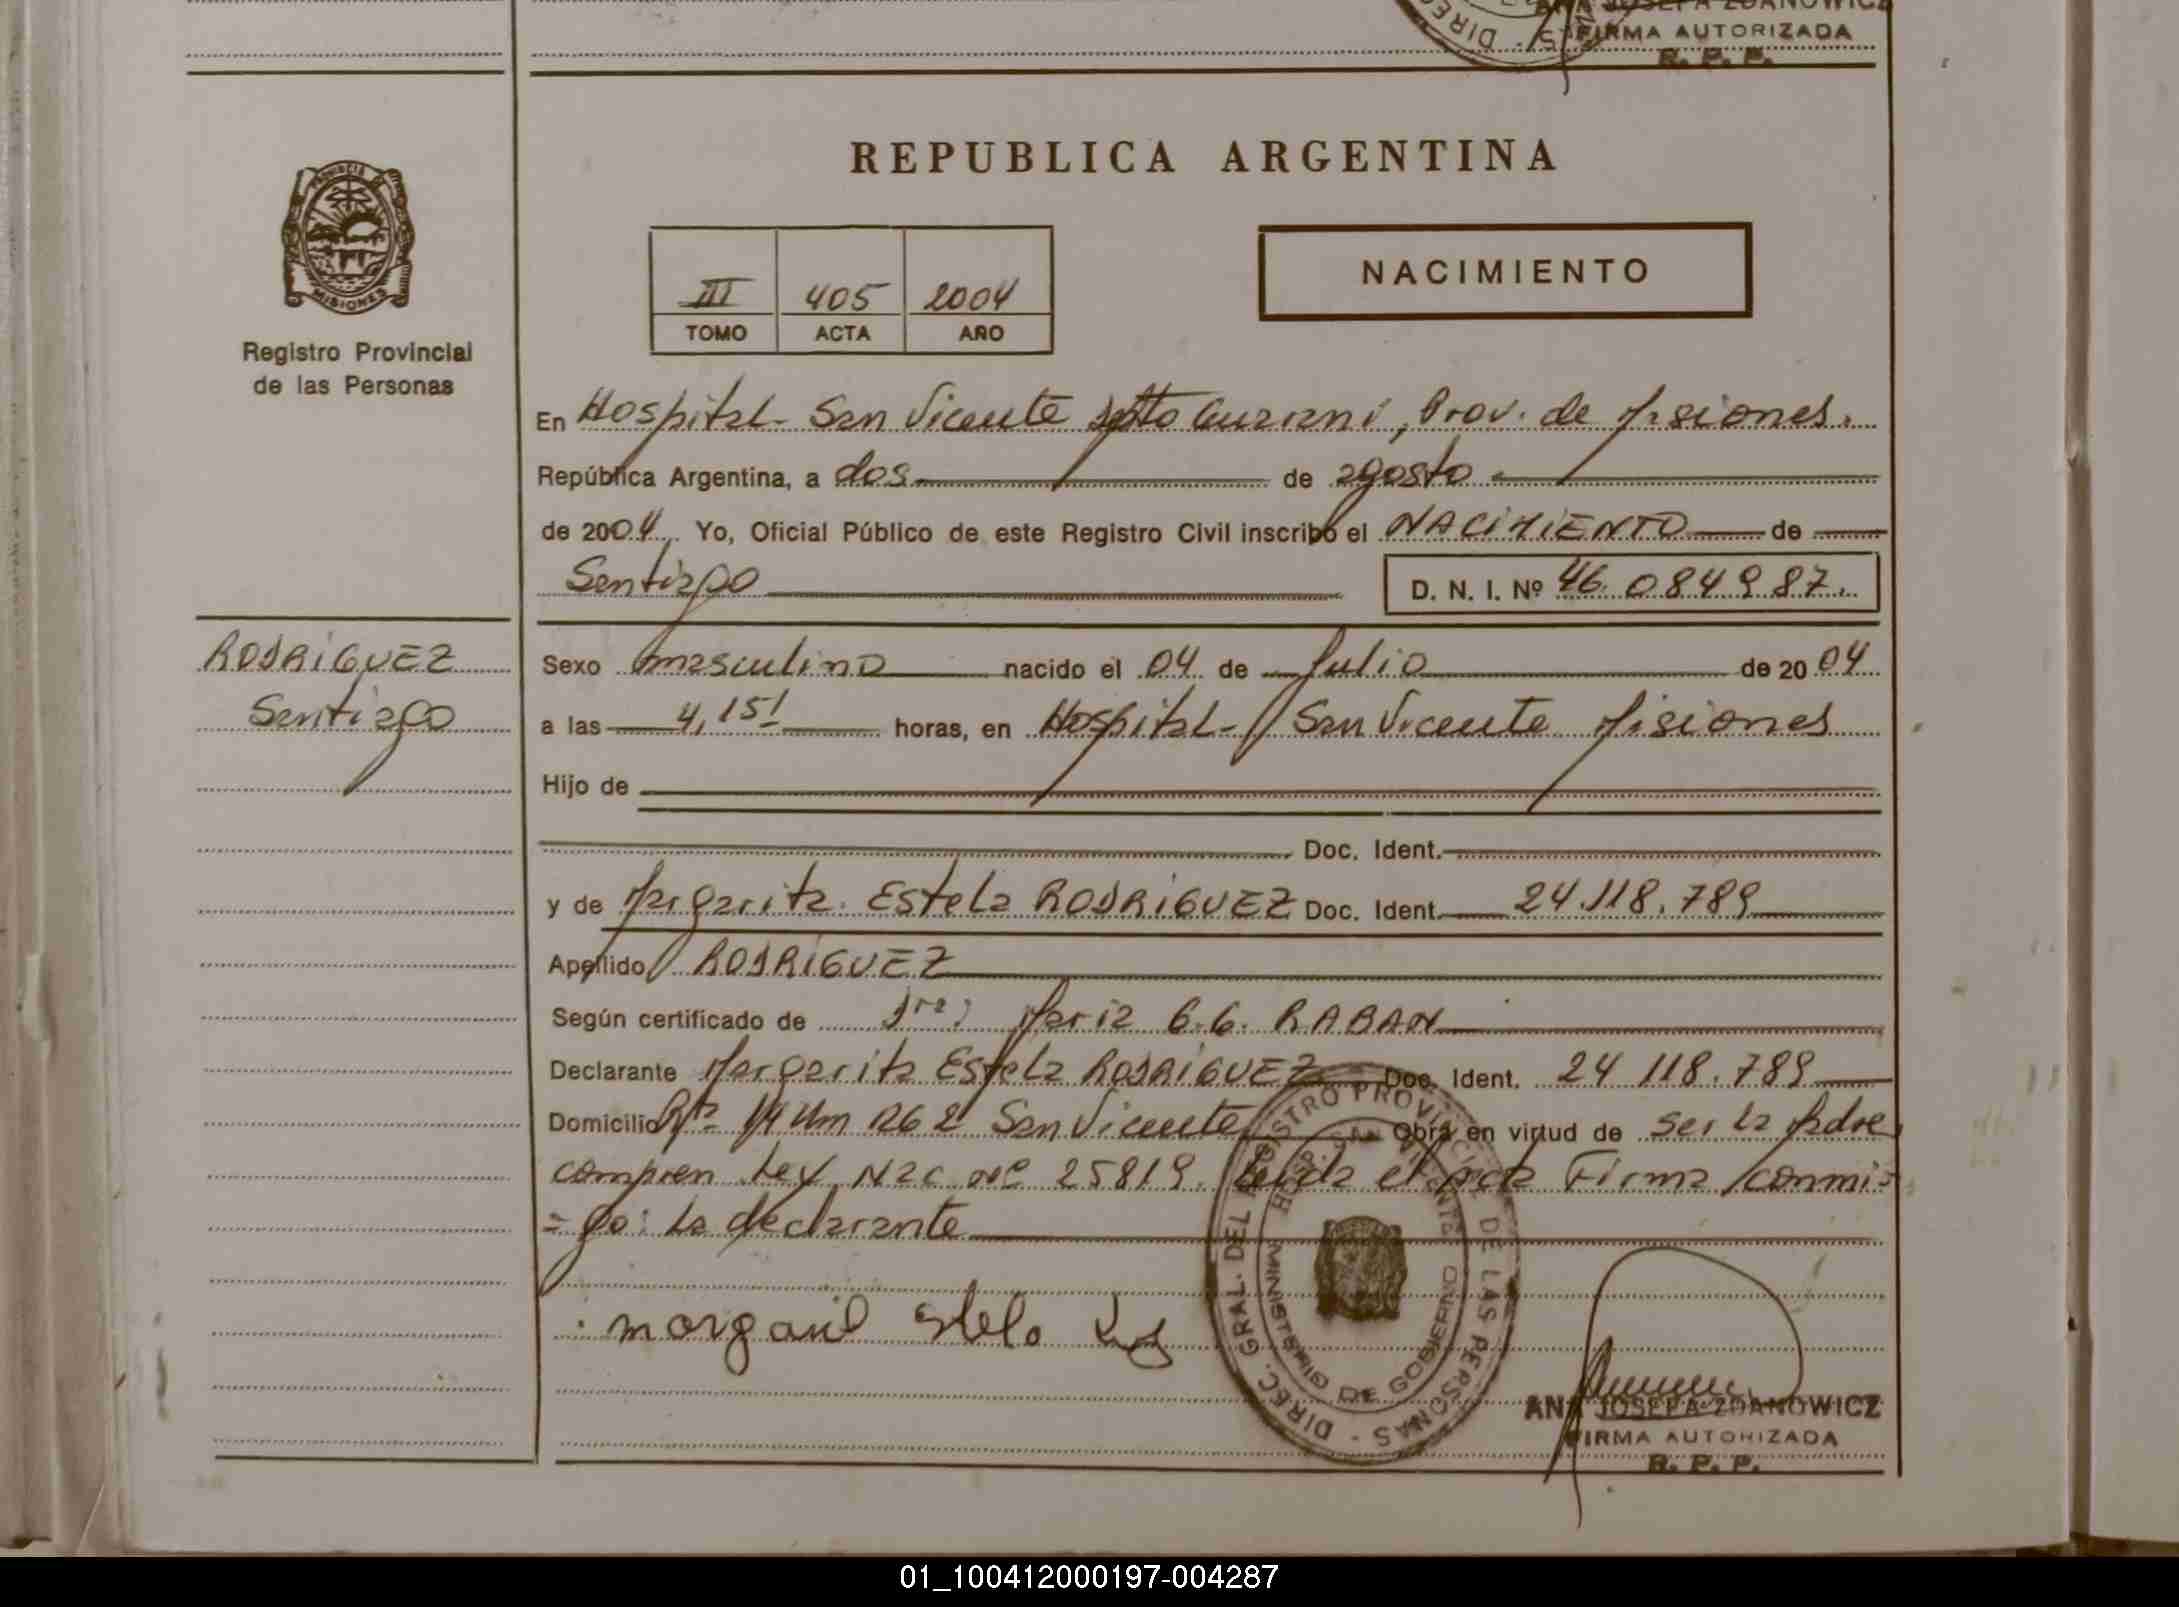 ANA JOSEFA ZDANOWICZ
FIRMA AUTORIZADA
R. P. P.
PROVINCIA DE
MISIONES
Registro Provincial
de las Personas
REPUBLICA ARGENTINA
III 405 2004
TOMO ACTA AÑO
NACIMIENTO
En Hospital - San Vicente Dpto Guarani, Prov. de Misiones.
República Argentina, a dos de agosto
de 2004 Yo, Oficial Público de este Registro Civil inscribo el NACIMIENTO de
Santiago
D. N. I. Nº 46.084987.
RODRIGUEZ
Santiago
Sexo masculino nacido el 04 de Julio de 2004
a las 4,15' horas, en Hospital - San Vicente Misiones
Hijo de
Doc. Ident.
y de Margarita Estela RODRIGUEZ Doc. Ident. 24.118.789
Apellido RODRIGUEZ
Según certificado de Dra: Maria G.G. RABAN
Declarante Margarita Estela RODRIGUEZ Doc. Ident. 24 118.789
Domicilio Rta 14 Km 1262 San Vicente Obra en virtud de ser la Madre
compren Ley Nac nº 25819. Leida el acta Firma conmi-
= go: la declarante
DIREC. GRAL. DEL REGISTRO PROVINCIAL DE LAS PERSONAS -
HOSP. SAN VICENTE
MINISTERIO DE GOBIERNO
ANA JOSEFA ZDANOWICZ
FIRMA AUTORIZADA
R. P. P.
01_100412000197-004287